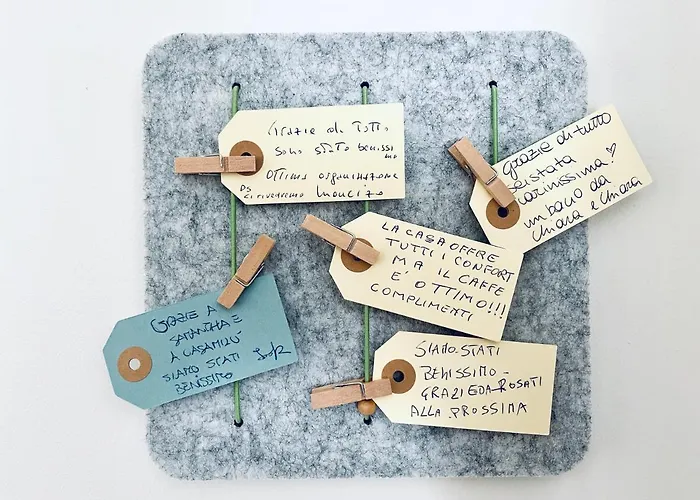 Grazie di Tutto
Sono stato benissi
mo
Ottima organizzazione
PS
Ci rivedremo Maurizio
grazie di tutto
sei stata
carinissima! ♡
un bacio da
Chiara e Chiara
LA CASA OFFRE
TUTTI I CONFORT
MA IL CAFFE
E' OTTIMO!!!
COMPLIMENTI
GRAZIE A
SAMANTHA E
A CASAMILÙ
SIAMO STATI
BENISSIMO
SIAMO STATI
BENISSIMO -
GRAZIE DA ROSATI
ALLA PROSSIMA